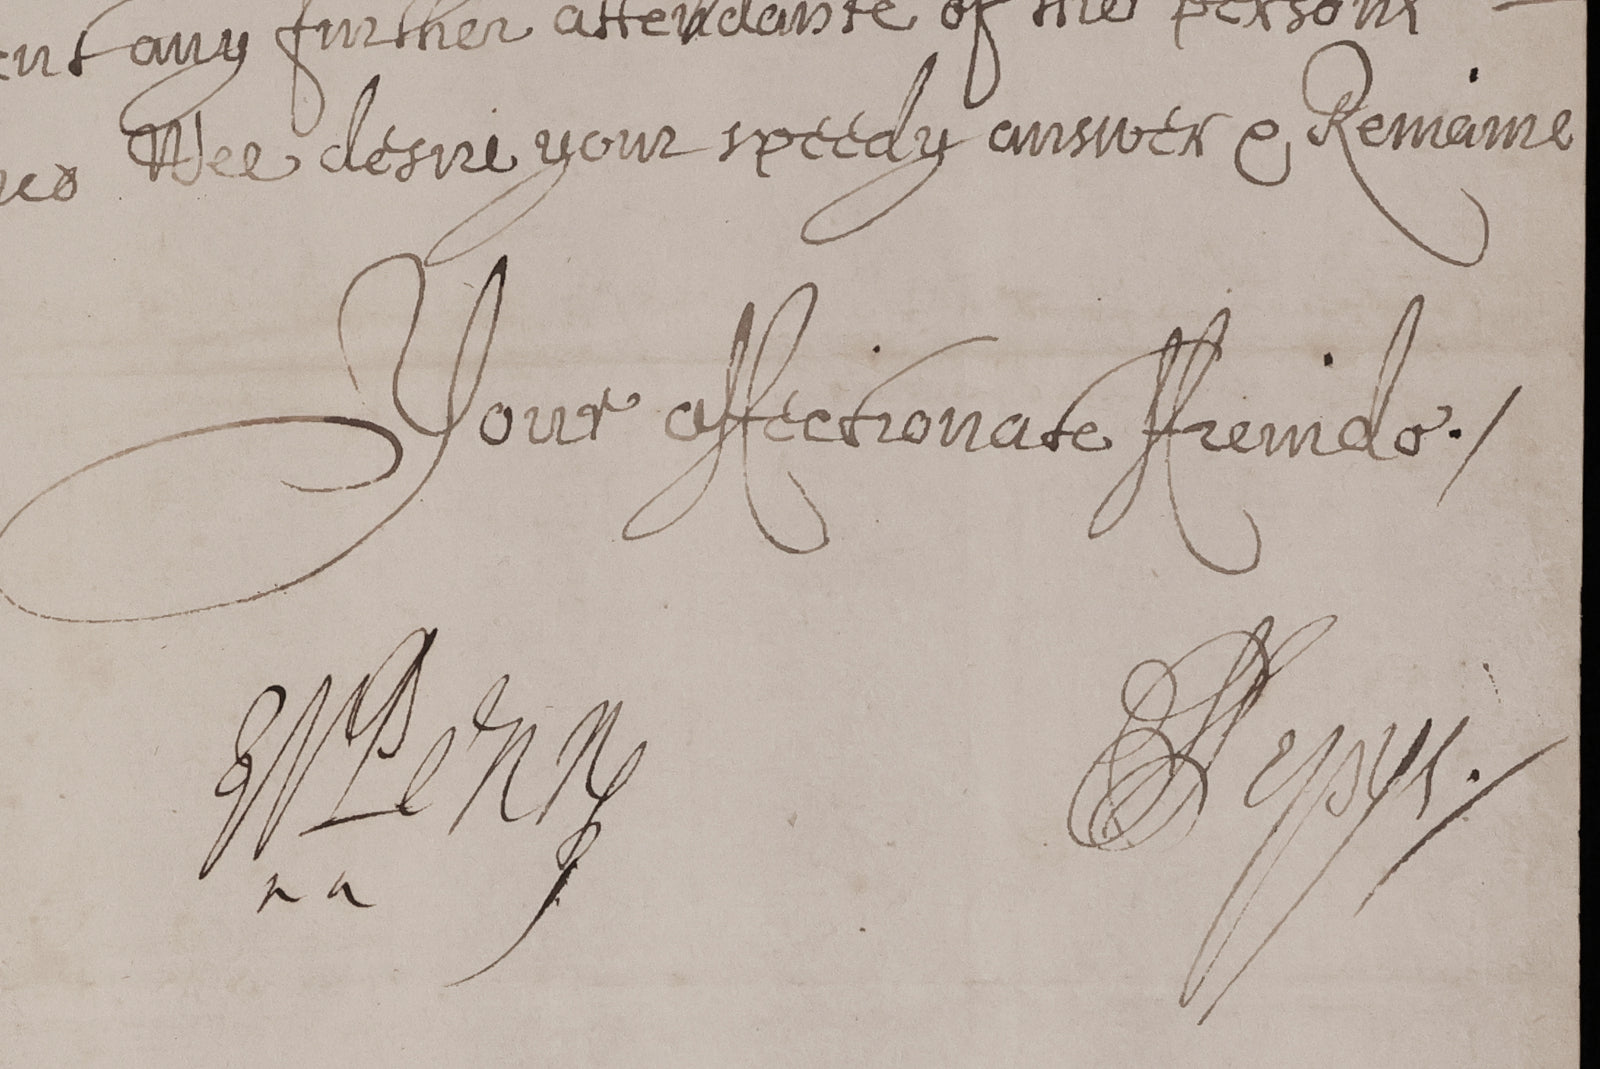 any further attendance of the persons
Wee desire your speedy answer & Remaine
Your affectionate ffreinds./
WPenn SPepys.